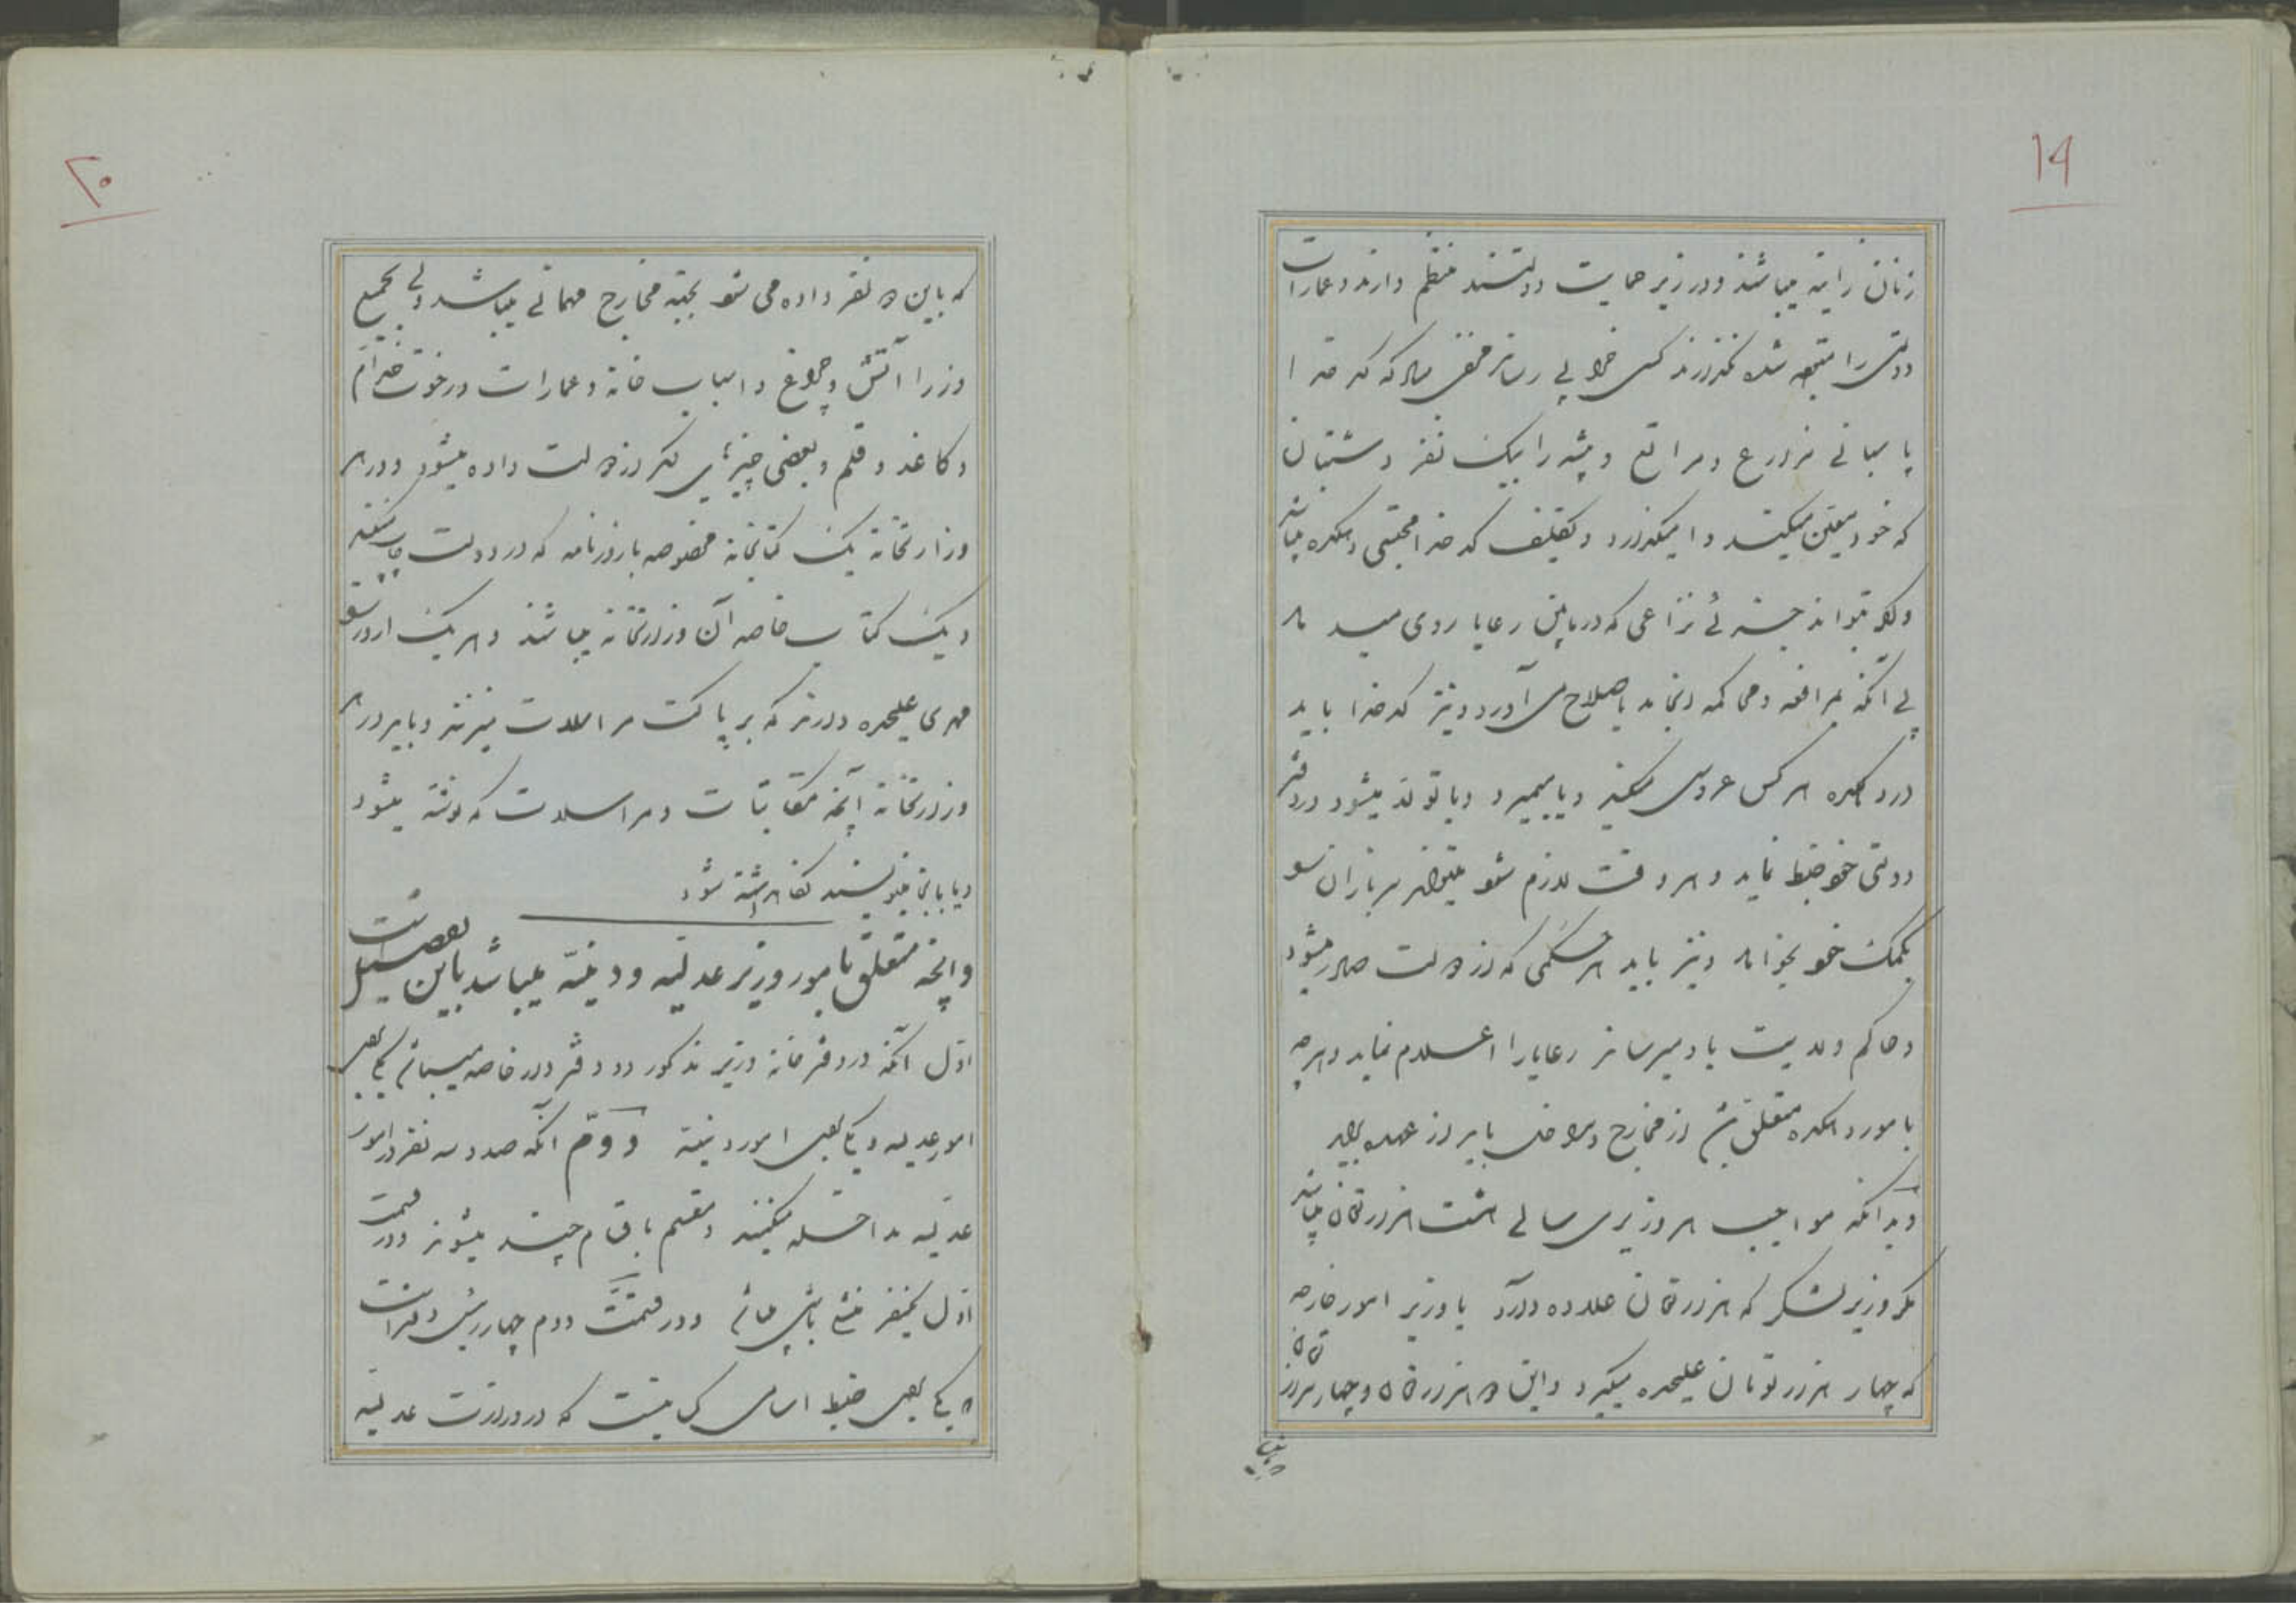 ۱۹
زنان زانیه میباشند و در زیر حمایت دولتند منظم دارند و عمارات
دولتی را متوجه شده نگذارند کسی خرابی رساند که کدخدا
پاسبانی مزارع و مراتع و بیشه را بیک نفر دشتبان
که خود معین میکند وا میگذارد و تکلیف کدخدا محتسبی دهکده میباشد
و اگر بتواند جزئی نزاعی که در مابین رعایا روی میدهد
بی آنکه بمرافعه و محاکمه انجامد باصلاح می آورد و نیز کدخدا باید
در دهکده هر کس عروسی میکند و یا میمیرد و یا تولد میشود در دفتر
دولتی خود ضبط نماید و هر وقت لازم شود میتواند سربازان را
بکمک خود بخواند و نیز باید هر حکمی که از دولت صادر میشود
و حاکم ولایت باو میرساند رعایا را اعلام نماید و هر چه
بامور دهکده متعلق است از مخارج و مداخل باید از عهده برآید
و بدانکه مواجب هر وزیری سالی هشت هزار تومان میباشد
مگر وزیر لشکر که هزار تومان علاوه دارد یا وزیر امور خارجه
که چهار هزار تومان علیحده میگیرد و این دو هزار تومان و چهار هزار تومان
۲۰
که باین دو نفر داده می شود بجهة مخارج مهمانی میباشد ولی بجمیع
وزرا آتش و چراغ و اسباب خانه و عمارات و رخوت خدام
و کاغذ و قلم و بعضی چیزهای دیگر از دولت داده میشود و در هر
وزارتخانه یک کتابخانه مخصوصه با روزنامه که در دولت چاپ میکنند
و یک کتاب خاصه آن وزارتخانه میباشند و هر یک از وزرا
مهری علیحده دارند که بر پاکت مراسلات میزنند و باید در هر
وزارتخانه آنچه مکاتبات و مراسلات که نوشته میشود
و یا باین مینویسند نگاهداشته شود
و آنچه متعلق بامور وزیر عدلیه و دینیه میباشد باین تفصیل است
اول آنکه در دفترخانه وزیر مذکور دو دفتردار خاصه میباشد یکی بجهة
امور عدلیه و یکی بجهة امور دینیه دوم آنکه صد و سه نفر در امور
عدلیه مداخله میکنند و منقسم باقسام چند میشوند و در قسمت
اول یکنفر منشی باشی میباشد و در قسمت دوم چهار رئیس دفتر است
یکی بجهة ضبط اسامی کسانیست که در وزارت عدلیه